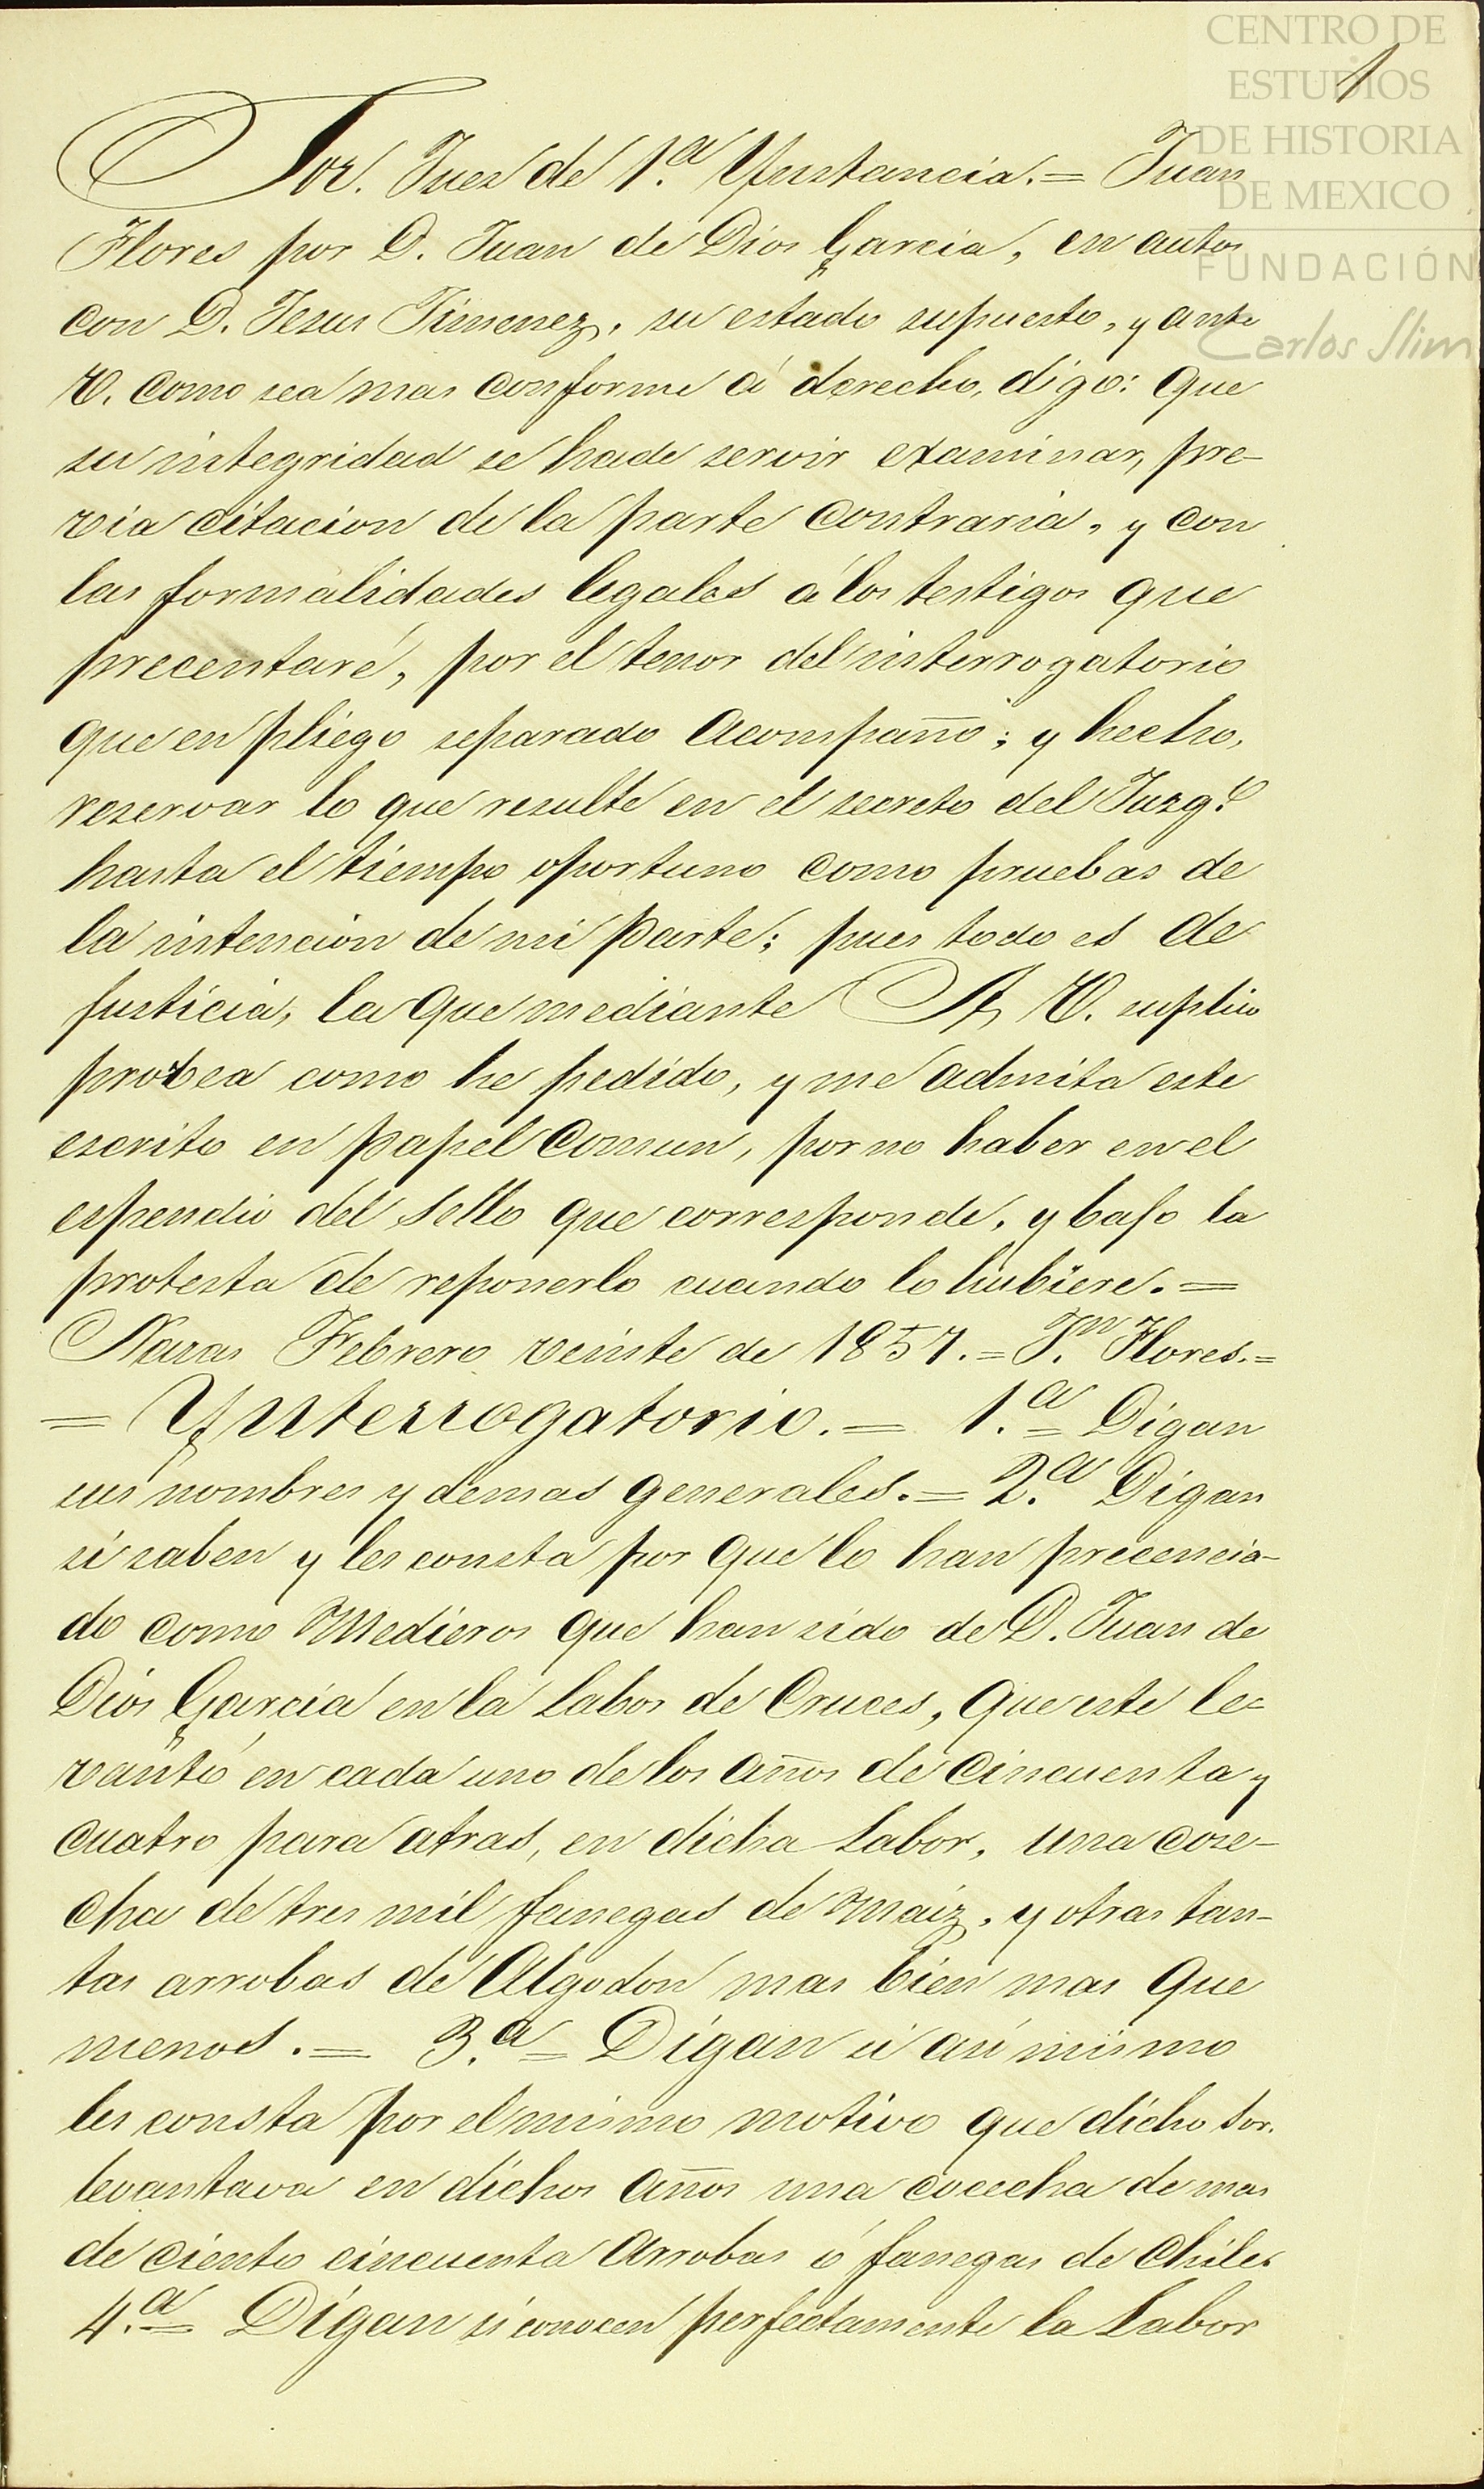 CENTRO DE
ESTUDIOS
DE HISTORIA
DE MEXICO
FUNDACIÓN
Carlos Slim
1
Sor. Juez de 1.ª Ynstancia.= Juan
Flores por D. Juan de Dios Garcia, en autos
con D. Jesus Jimenez, su estado supuesto, y ante
V. como sea mas conforme á derecho, digo: que
su integridad se hade servir examinar, pre-
via citacion de la parte contraria, y con
las formalidades legales á los testigos que
precentaré, por el tenor del interrogatorio
que en pliego separado acompaño; y hecho,
reservar lo que resulte en el secreto del Juzg.º
hasta el tiempo oportuno como pruebas de
la intencion de mi parte; pues todo es de
justicia, la que mediante A V. suplico
probea como he pedido, y me admita este
escrito en papel comun, por no haber en el
espendio del sello que corresponde, y bajo la
protesta de reponerlo cuando lo hubiere.=
Nazas Febrero veinte de 1857.= J.n Flores.=
= Ynterrogatorio.= 1.ª= Digan
sus nombres y demas generales.= 2.ª Digan
si saben y les consta por que lo han precencia-
do como Medieros que han sido de D. Juan de
Dios Garcia en la Labor de Cruces, que este le-
vantó en cada uno de los años de cincuenta y
cuatro para atras, en dicha Labor, una cose-
cha de tres mil fanegas de Maiz, y otras tan-
tas arrobas de Algodon mas bien mas que
menos.= 3.ª= Digan si asi mismo
les consta por el mismo motivo que dicho Sor.
levantava en dichos años una cocecha de mas
de ciento cincuenta Arrobas ó fanegas de Chile.
4.ª= Digan si conocen perfectamente la Labor